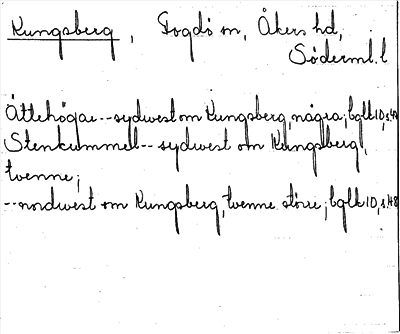 Kungsberg, Fogdö sn, Åkers hd,
Söderml. l
Ättehögar -- sydwest om Kungsberg, några; bglk 10, s.
Stenkummel -- sydwest om Kungsberg,
twenne;
-- nordwest om Kungsberg, twenne större; bglk 10, s. 48